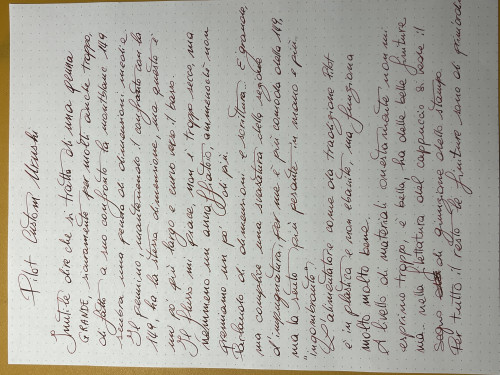 Pilot Custom Urushi
Inutile dire che si tratta di una penna
GRANDE, sicuramente per molti anche troppo,
di fatto a suo confronto la montblanc 149
sembra una penna di dimensioni medie.
Il pennino mantenendo il confronto con la
149, ha la stessa dimensione, ma questo è
un po' più largo e curvo verso il basso.
Il flusso mi piace, non è troppo secco, ma
nemmeno un annaffiatoio, aumenterà non
premiamo un po' di più.
Parlando di dimensioni e scrittura. È grande,
ma complice una svasatura della sezione
d'impugnatura, per me è più comoda della 149,
ma la sento più pesante in mano e più
"ingombrante".
L'alimentatore come da tradizione Pilot
è in plastica e non ebanite, ma funziona
molto molto bene.
A livello di materiali onestamente non mi
esprimo troppo, è bella, ha delle belle finiture
ma.. nella filettatura del cappuccio si vede il
segno di giunzione dello stampo.
Per tutto il resto le finiture sono di